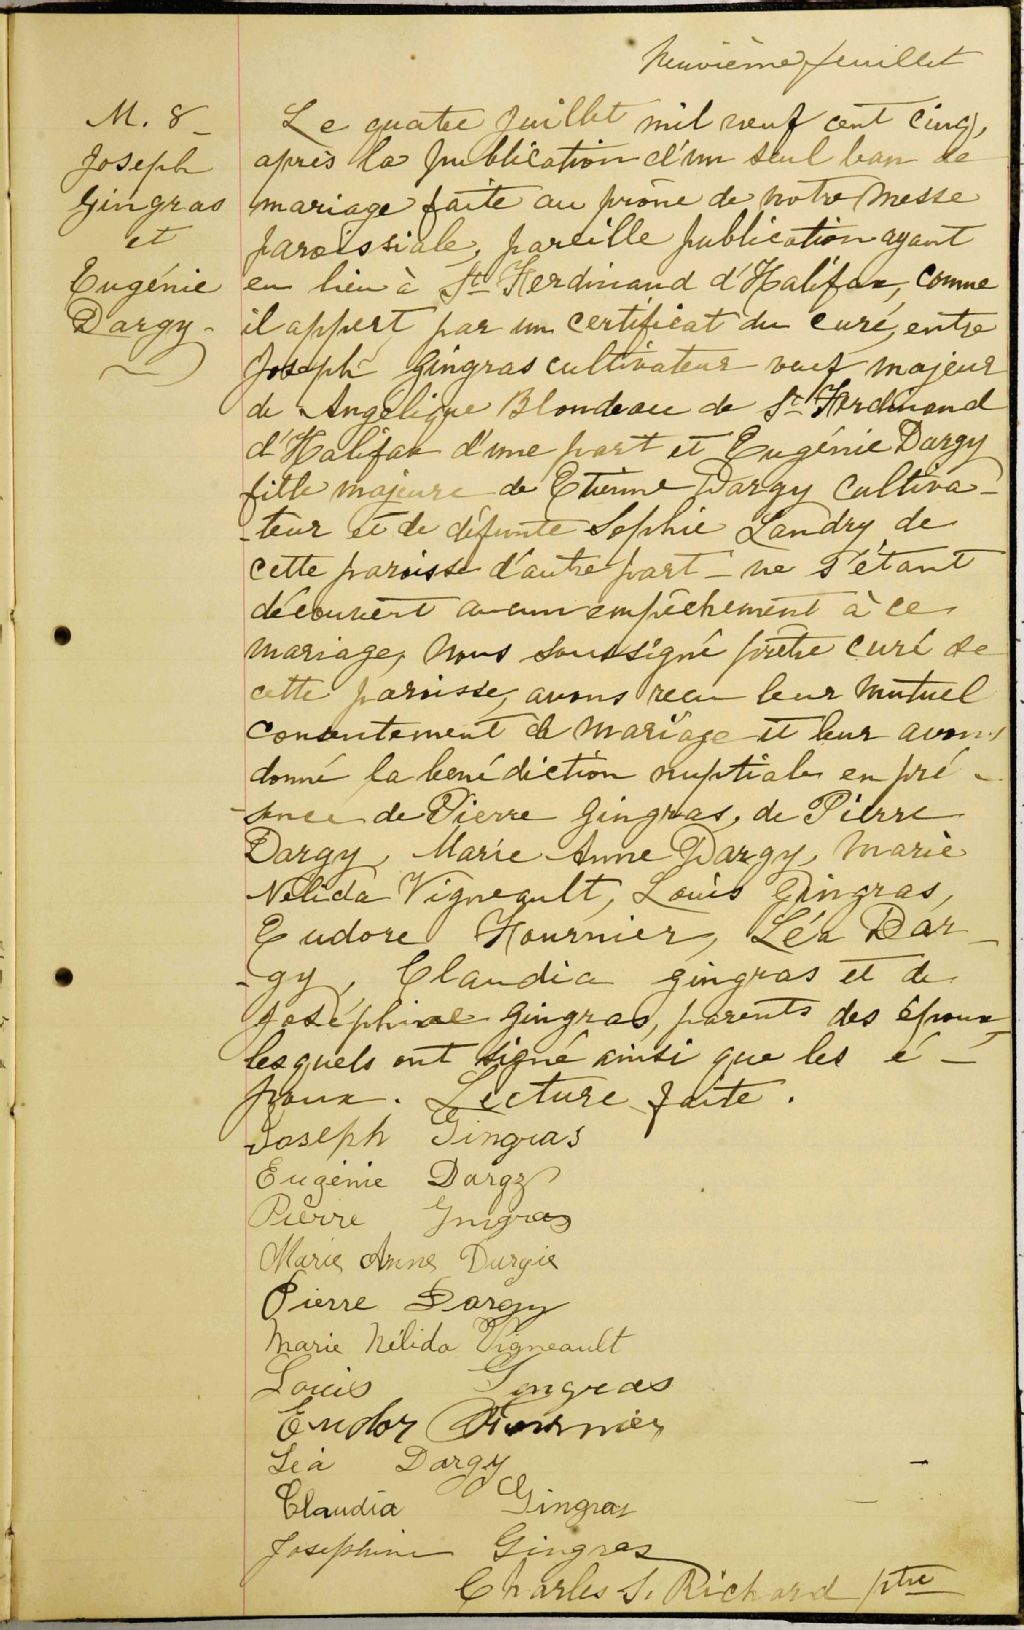 Neuvième feuillet
M. 8 -
Joseph
Gingras
et
Eugénie
Dargy -
Le quatre Juillet mil neuf cent cinq,
après la publication d'un seul ban de
mariage faite au prône de notre Messe
paroissiale, pareille publication ayant
eu lieu à St Ferdinand d'Halifax, comme
il appert par un certificat du curé, entre
Joseph Gingras cultivateur veuf majeur
de Angélique Blondeau de St Ferdinand
d'Halifax d'une part et Eugénie Dargy
fille majeure de Etienne Dargy cultiva-
-teur et de défunte Sophie Landry de
cette paroisse d'autre part - ne s'étant
découvert aucun empêchement à ce
mariage, Nous soussigné prêtre curé de
cette paroisse, avons reçu leur mutuel
consentement de mariage et leur avons
donné la bénédiction nuptiale en pré-
-sence de Pierre Gingras, de Pierre
Dargy, Marie Anne Dargy, Marie
Nélida Vigneault, Louis Gingras,
Eudore Fournier, Léa Dar-
-gy, Claudia Gingras et de
Joséphine Gingras, parents des époux,
lesquels ont signé ainsi que les é-
poux. Lecture faite.
Joseph Gingras
Eugénie Dargy
Pierre Gingras
Marie Anne Durgie
Pierre Dargy
Marie Nélida Vigneault
Louis Gingras
Eudor Fournier
Léa Dargy
Claudia Gingras
Josephine Gingras
Charles S. Richard ptre